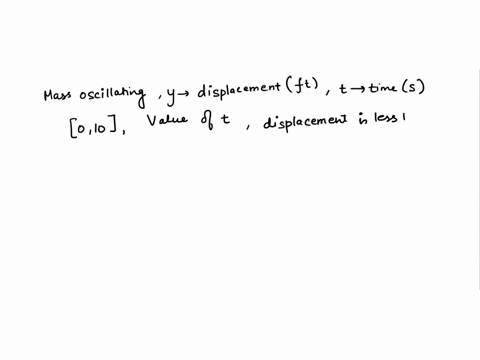 Mass oscillating , y→ displacement (ft) , t→ time (s)
[0,10] , Value of t , displacement is less